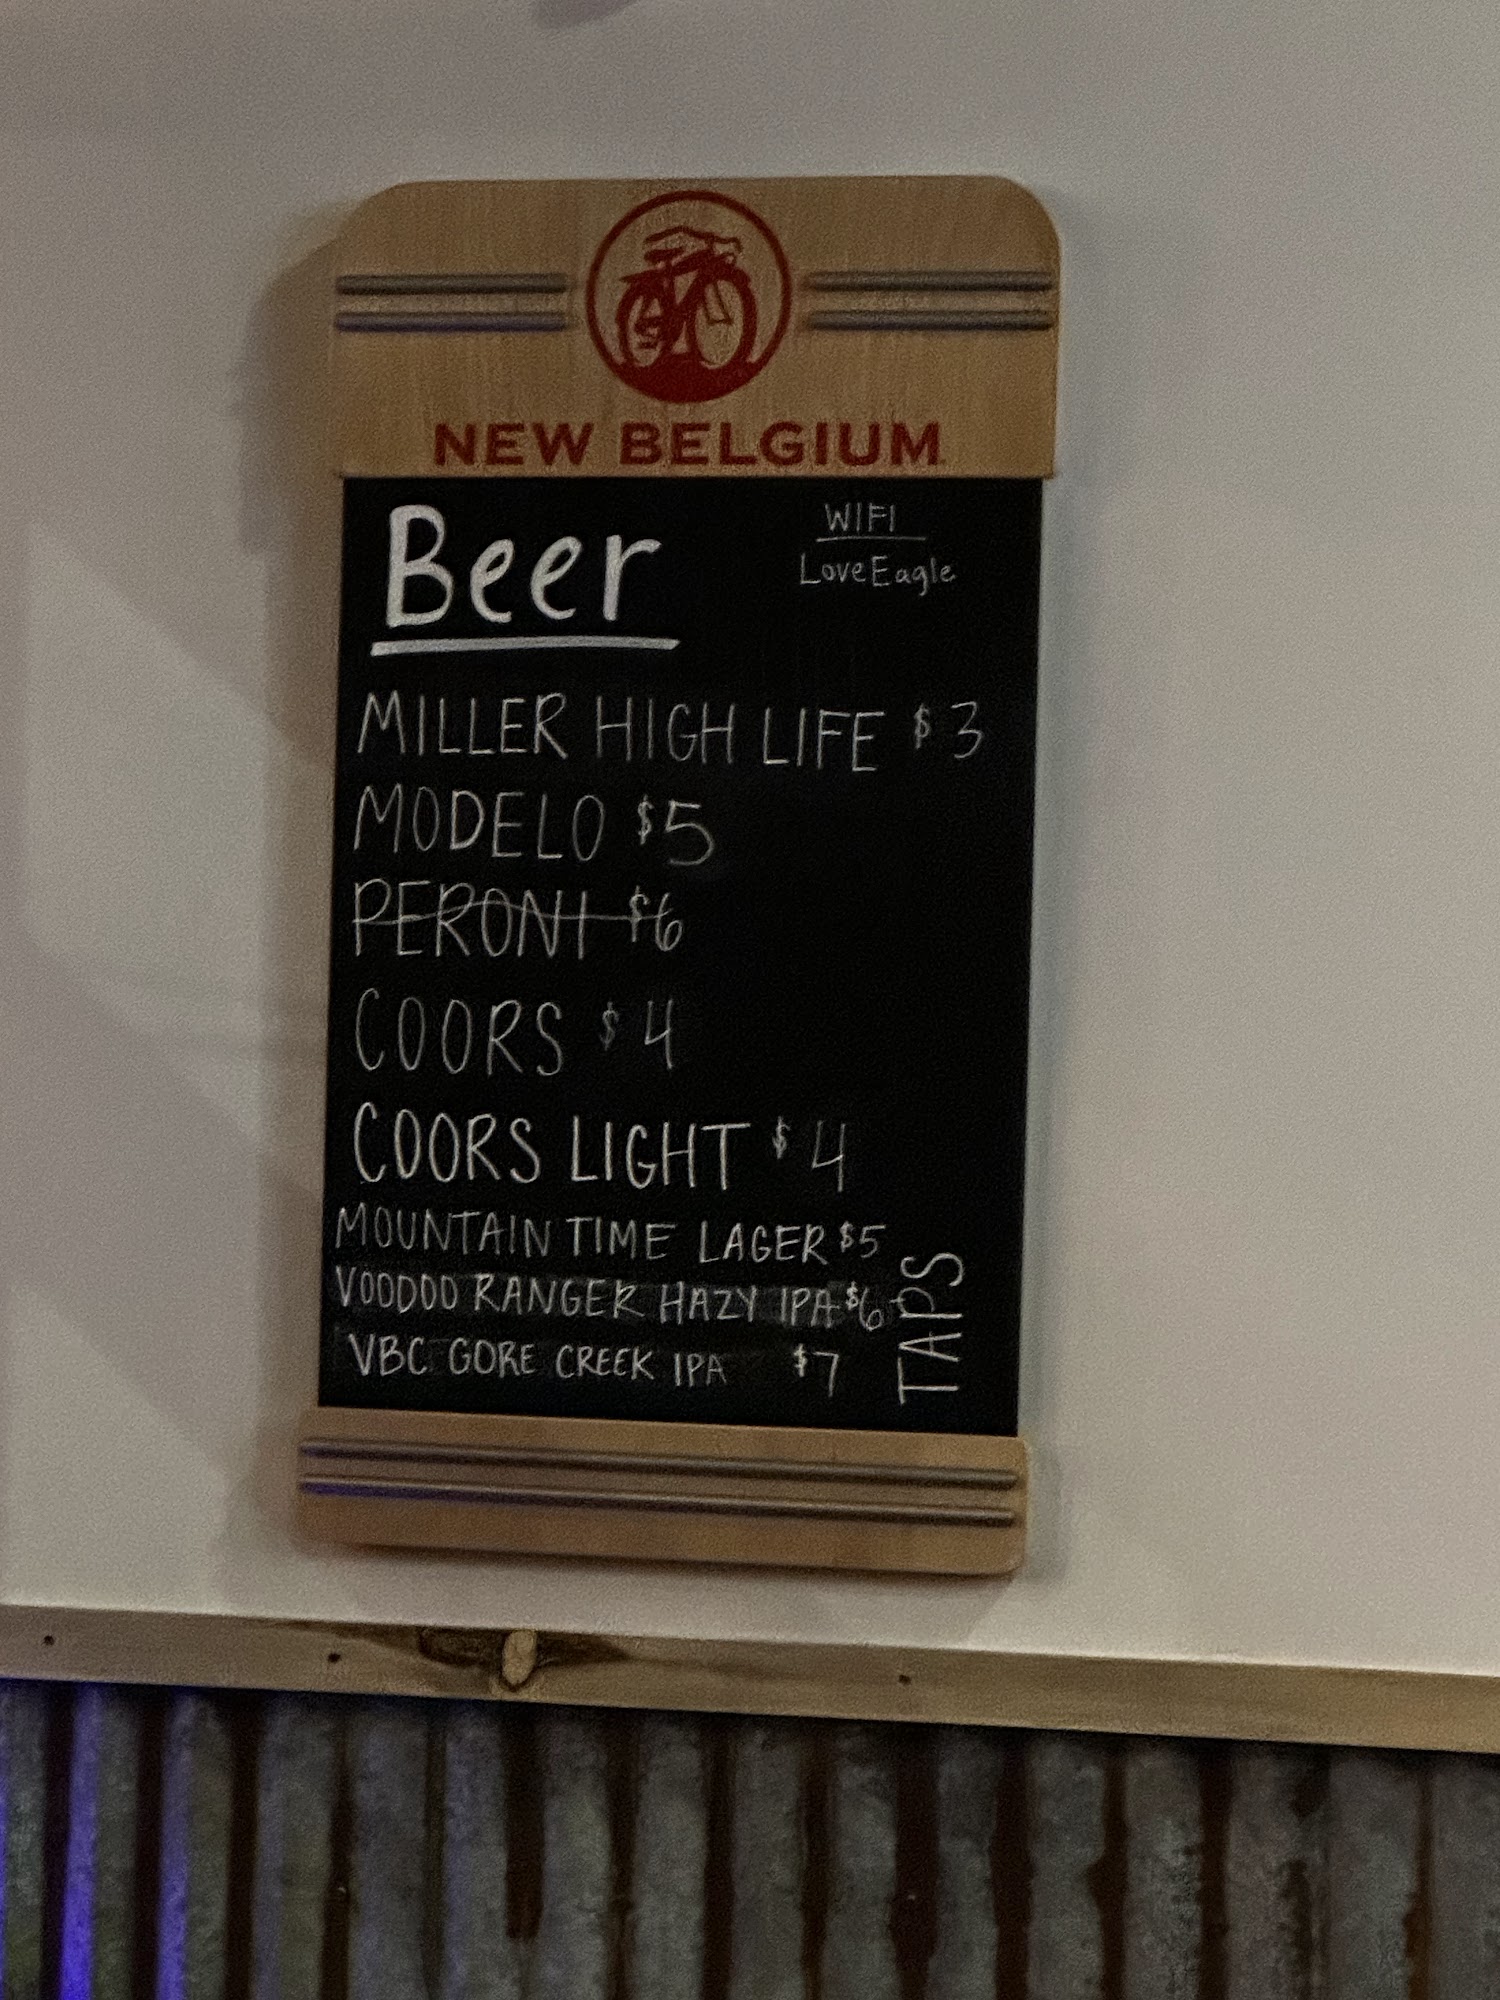 NEW BELGIUM
Beer
WIFI
LoveEagle
MILLER HIGH LIFE $3
MODELO $5
PERONI $6
COORS $4
COORS LIGHT $4
MOUNTAIN TIME LAGER $5
VOODOO RANGER HAZY IPA $6
VBC GORE CREEK IPA $7
TAPS